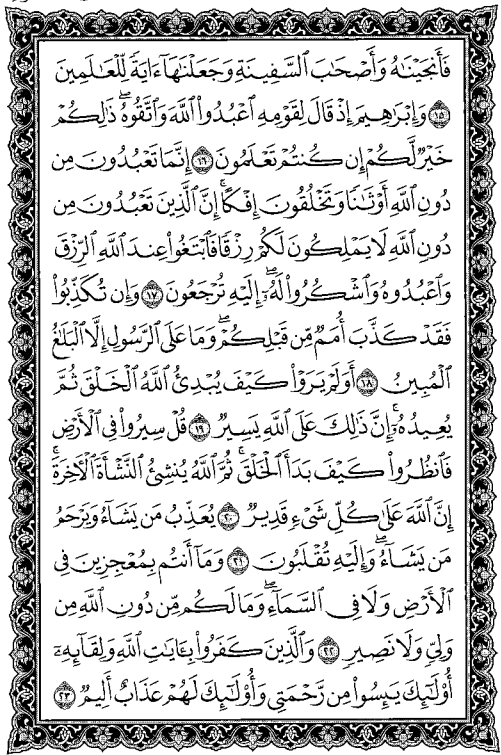 فَأَنجَيْنَٰهُ وَأَصْحَٰبَ ٱلسَّفِينَةِ وَجَعَلْنَٰهَآ ءَايَةً لِّلْعَٰلَمِينَ
﴿١٥﴾ وَإِبْرَٰهِيمَ إِذْ قَالَ لِقَوْمِهِ ٱعْبُدُوا۟ ٱللَّهَ وَٱتَّقُوهُ ۖ ذَٰلِكُمْ
خَيْرٌ لَّكُمْ إِن كُنتُمْ تَعْلَمُونَ ﴿١٦﴾ إِنَّمَا تَعْبُدُونَ مِن
دُونِ ٱللَّهِ أَوْثَٰنًا وَتَخْلُقُونَ إِفْكًا ۚ إِنَّ ٱلَّذِينَ تَعْبُدُونَ مِن
دُونِ ٱللَّهِ لَا يَمْلِكُونَ لَكُمْ رِزْقًا فَٱبْتَغُوا۟ عِندَ ٱللَّهِ ٱلرِّزْقَ
وَٱعْبُدُوهُ وَٱشْكُرُوا۟ لَهُۥٓ ۖ إِلَيْهِ تُرْجَعُونَ ﴿١٧﴾ وَإِن تُكَذِّبُوا۟
فَقَدْ كَذَّبَ أُمَمٌ مِّن قَبْلِكُمْ ۖ وَمَا عَلَى ٱلرَّسُولِ إِلَّا ٱلْبَلَٰغُ
ٱلْمُبِينُ ﴿١٨﴾ أَوَلَمْ يَرَوْا۟ كَيْفَ يُبْدِئُ ٱللَّهُ ٱلْخَلْقَ ثُمَّ
يُعِيدُهُۥٓ ۚ إِنَّ ذَٰلِكَ عَلَى ٱللَّهِ يَسِيرٌ ﴿١٩﴾ قُلْ سِيرُوا۟ فِى ٱلْأَرْضِ
فَٱنظُرُوا۟ كَيْفَ بَدَأَ ٱلْخَلْقَ ۚ ثُمَّ ٱللَّهُ يُنشِئُ ٱلنَّشْأَةَ ٱلْءَاخِرَةَ ۚ
إِنَّ ٱللَّهَ عَلَىٰ كُلِّ شَىْءٍ قَدِيرٌ ﴿٢٠﴾ يُعَذِّبُ مَن يَشَآءُ وَيَرْحَمُ
مَن يَشَآءُ ۖ وَإِلَيْهِ تُقْلَبُونَ ﴿٢١﴾ وَمَآ أَنتُم بِمُعْجِزِينَ فِى
ٱلْأَرْضِ وَلَا فِى ٱلسَّمَآءِ ۖ وَمَا لَكُم مِّن دُونِ ٱللَّهِ مِن
وَلِىٍّ وَلَا نَصِيرٍ ﴿٢٢﴾ وَٱلَّذِينَ كَفَرُوا۟ بِـَٔايَٰتِ ٱللَّهِ وَلِقَآئِهِۦٓ
أُو۟لَٰٓئِكَ يَئِسُوا۟ مِن رَّحْمَتِى وَأُو۟لَٰٓئِكَ لَهُمْ عَذَابٌ أَلِيمٌ ﴿٢٣﴾